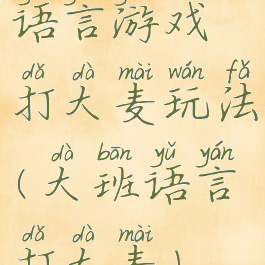 语言游戏
dǎ dà mài wán fǎ
打大麦玩法
dà bān yǔ yán
(大班语言
dǎ dà mài
打大麦)